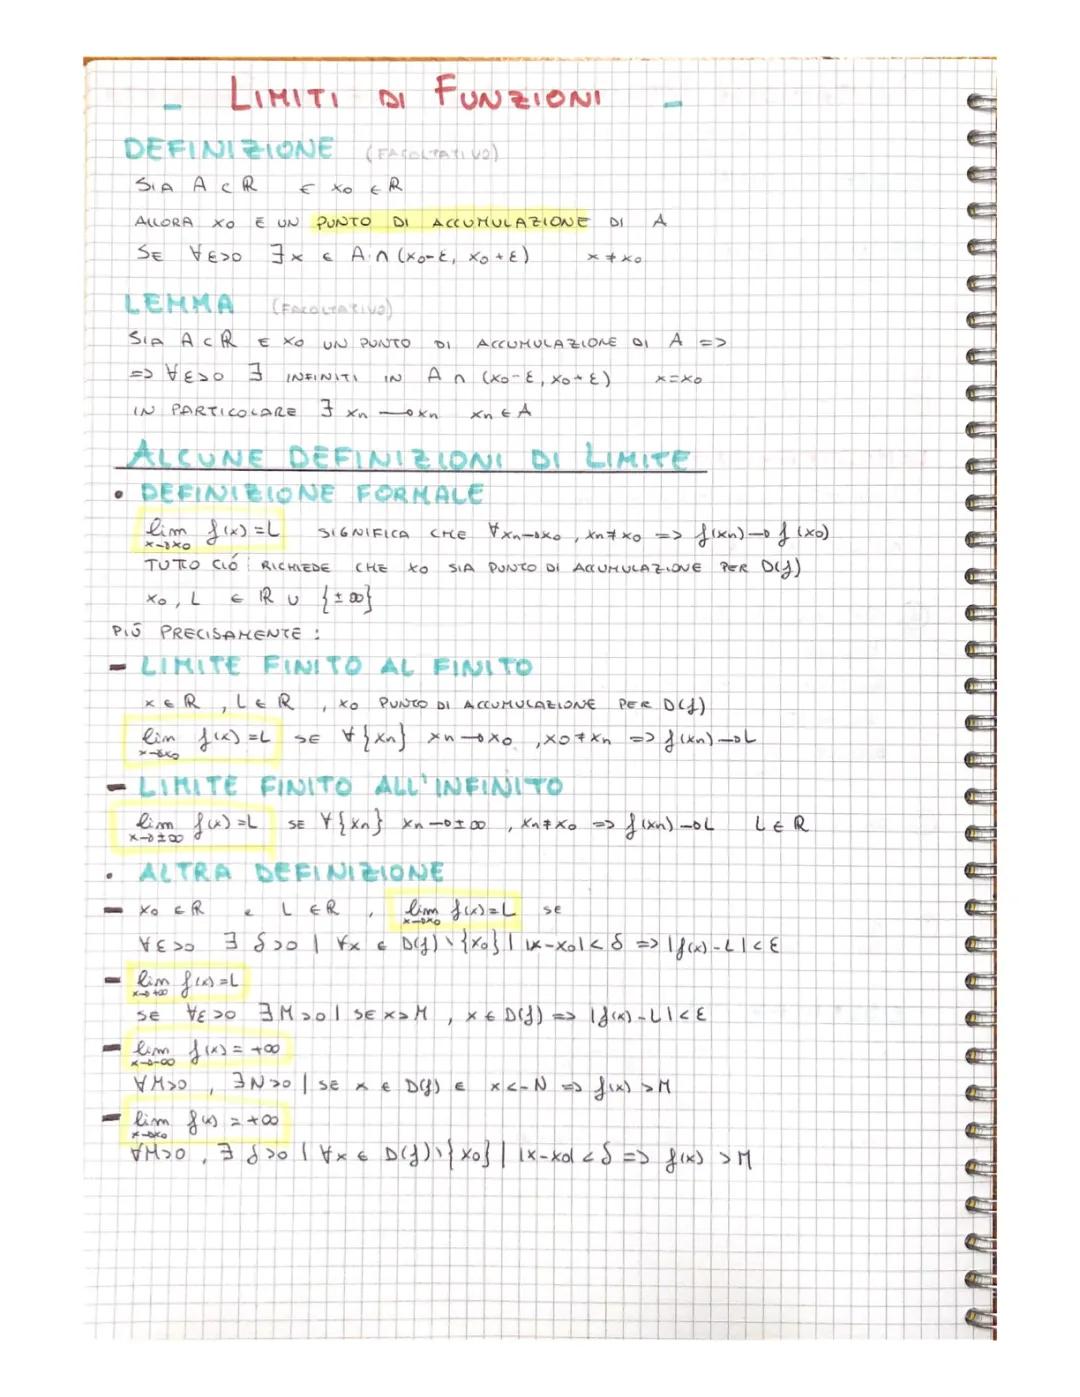 - LIMITI DI FUNZIONI -
DEFINIZIONE (FACOLTATIVO)
SIA A ⊂ ℝ E x₀ ∈ ℝ
ALLORA x₀ È UN PUNTO DI ACCUMULAZIONE DI A
SE ∀ε>0 ∃x ∈ A∩(x₀-ε, x₀+ε) x≠x₀
LEMMA (FACOLTATIVO)
SIA A⊂ℝ E x₀ UN PUNTO DI ACCUMULAZIONE DI A =>
=> ∀ε>0 ∃ INFINITI IN A∩(x₀-ε, x₀+ε) x=x₀
IN PARTICOLARE ∃ xn → xn xn ∈ A
ALCUNE DEFINIZIONI DI LIMITE
• DEFINIZIONE FORMALE
lim f(x)=L SIGNIFICA CHE ∀xn→x₀, xn≠x₀ => f(xn)→f(x₀)
x→x₀
TUTTO CIÓ RICHIEDE CHE x₀ SIA PUNTO DI ACCUMULAZIONE PER D(f)
x₀, L ∈ ℝ ∪ {±∞}
PIÚ PRECISAMENTE:
- LIMITE FINITO AL FINITO
x∈ℝ, L∈ℝ, x₀ PUNTO DI ACCUMULAZIONE PER D(f)
lim f(x)=L SE ∀{xn} xn→x₀, x₀≠xn => f(xn)→L
x→x₀
- LIMITE FINITO ALL'INFINITO
lim f(x)=L SE ∀{xn} xn→±∞, xn≠x₀ => f(xn)→L L∈ℝ
x→±∞
• ALTRA DEFINIZIONE
- x₀∈ℝ e L∈ℝ, lim f(x)=L SE
x→x₀
∀ε>0 ∃δ>0 | ∀x ∈ D(f)\{x₀} | |x-x₀|<δ => |f(x)-L|<ε
- lim f(x)=L
x→+∞
SE ∀ε>0 ∃M>0 | SE x>M, x∈D(f) => |f(x)-L|<ε
- lim f(x)=+∞
x→-∞
∀M>0, ∃N>0 | SE x∈D(f) E x<-N => f(x)>M
- lim f(x)=+∞
x→x₀
∀M>0, ∃δ>0 | ∀x∈D(f)\{x₀} | |x-x₀|<δ => f(x)>M